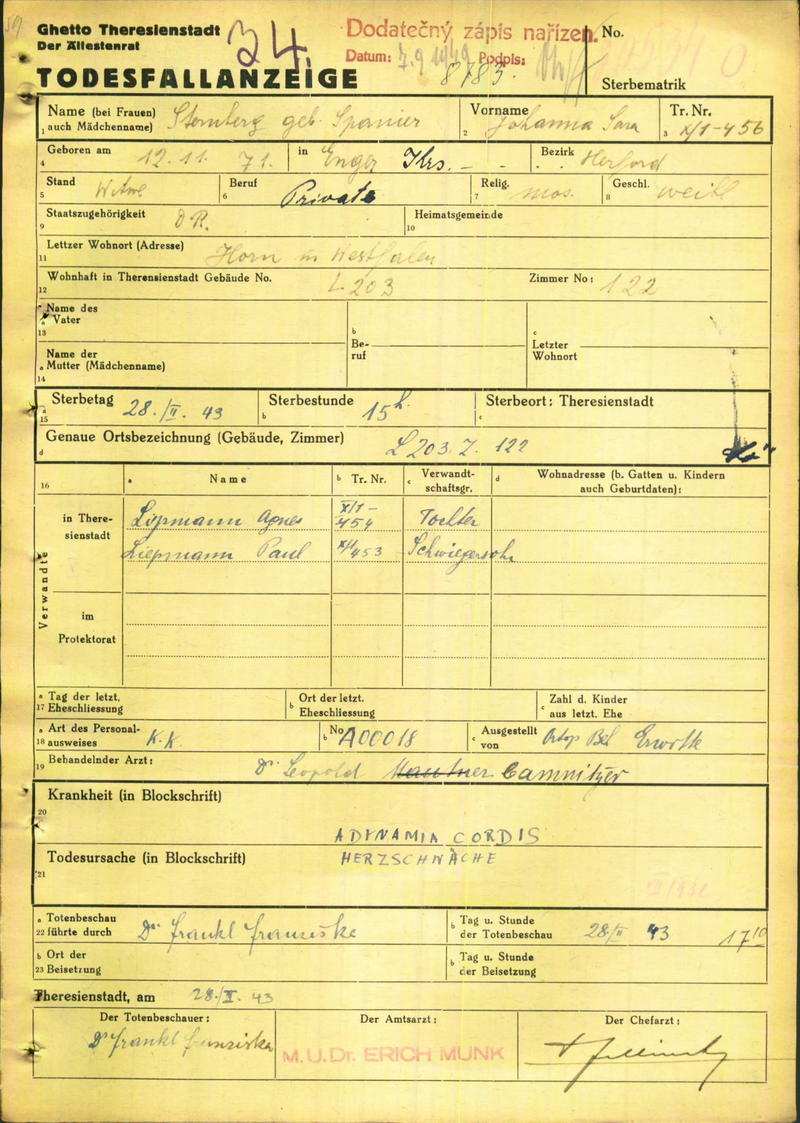 Ghetto Theresienstadt
Der Ältestenrat
34.
Dodatečný zápis nařízen.
Datum: 7.9.1949 Podpis:
8783.
No.
TODESFALLANZEIGE
Sterbematrik
Name (bei Frauen) Sternberg geb. Spanier
1 auch Mädchenname)
Vorname Johanna Sara
2
Tr. Nr.
3 XI/1-456
Geboren am 12.11. 71. in Enger Krs. - - Bezirk . . Herford
4
Stand Witwe Beruf Private Relig. mos. Geschl. weibl
5 6 7 8
Staatszugehörigkeit D.R. Heimatsgemeinde
9 10
Lettzer Wohnort (Adresse) Horn in Westfalen
11
Wohnhaft in Therensienstadt Gebäude No. L 203 Zimmer No: 122
12
a Name des Vater
13
b Beruf
c Letzter Wohnort
Name der
a Mutter (Mädchenname)
14
a Sterbetag 28./II. 43 Sterbestunde 15 h. Sterbeort: Theresienstadt
15 b c
Genaue Ortsbezeichnung (Gebäude, Zimmer) L 203 Z. 122
d
16 a Name b Tr. Nr. c Verwandtschaftsgr. d Wohnadresse (b. Gatten u. Kindern auch Geburtdaten):
Verwandte
in Theresienstadt
Lipmann Agnes XI/1-454 Tochter
Liepmann Paul XI/1 453 Schwiegersohn
im Protektorat
a Tag der letzt.
17 Eheschliessung
b Ort der letzt. Eheschliessung
c Zahl d. Kinder aus letzt. Ehe
a Art des Personal-
18 ausweises K.K.
b No A00018
c Ausgestellt von
19 Behandelnder Arzt: Dr. Leopold Camnitzer
Krankheit (in Blockschrift)
20
ADYNAMIA CORDIS
Todesursache (in Blockschrift) HERZSCHWÄCHE
21
a Totenbeschau
22 führte durch Dr. Frankl Franziska
b Tag u. Stunde der Totenbeschau 28/II 43 17 10
b Ort der
23 Beisetzung
b Tag u. Stunde der Beisetzung
Theresienstadt, am 28./II. 43
Der Totenbeschauer: Der Amtsarzt: Der Chefarzt:
Dr Frankl Franziska M.U.Dr. ERICH MUNK